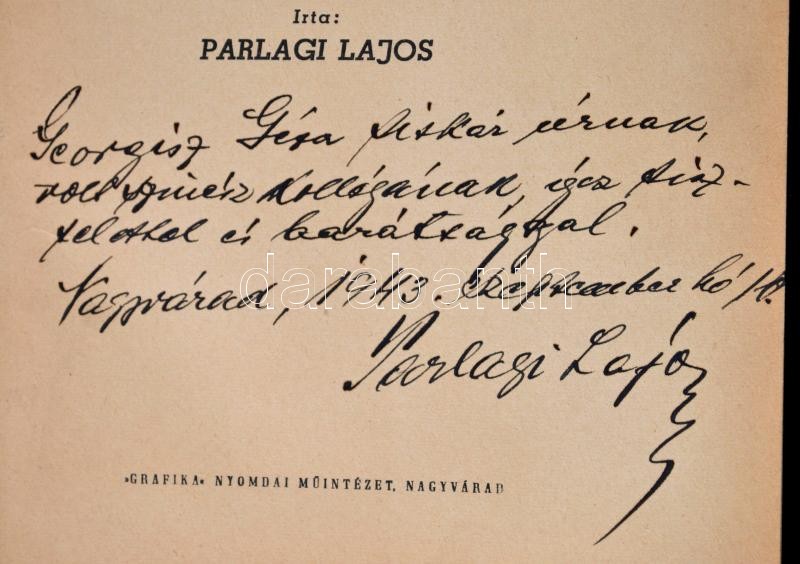 Irta:
PARLAGI LAJOS
Georgisz Géza fiskár úrnak,
volt színész kollégának, igaz tisz-
telettel és barátsággal.
Nagyvárad, 1943. Szeptember hó
Parlagi Lajos
darabanth
»GRAFIKA« NYOMDAI MŰINTÉZET, NAGYVÁRAD